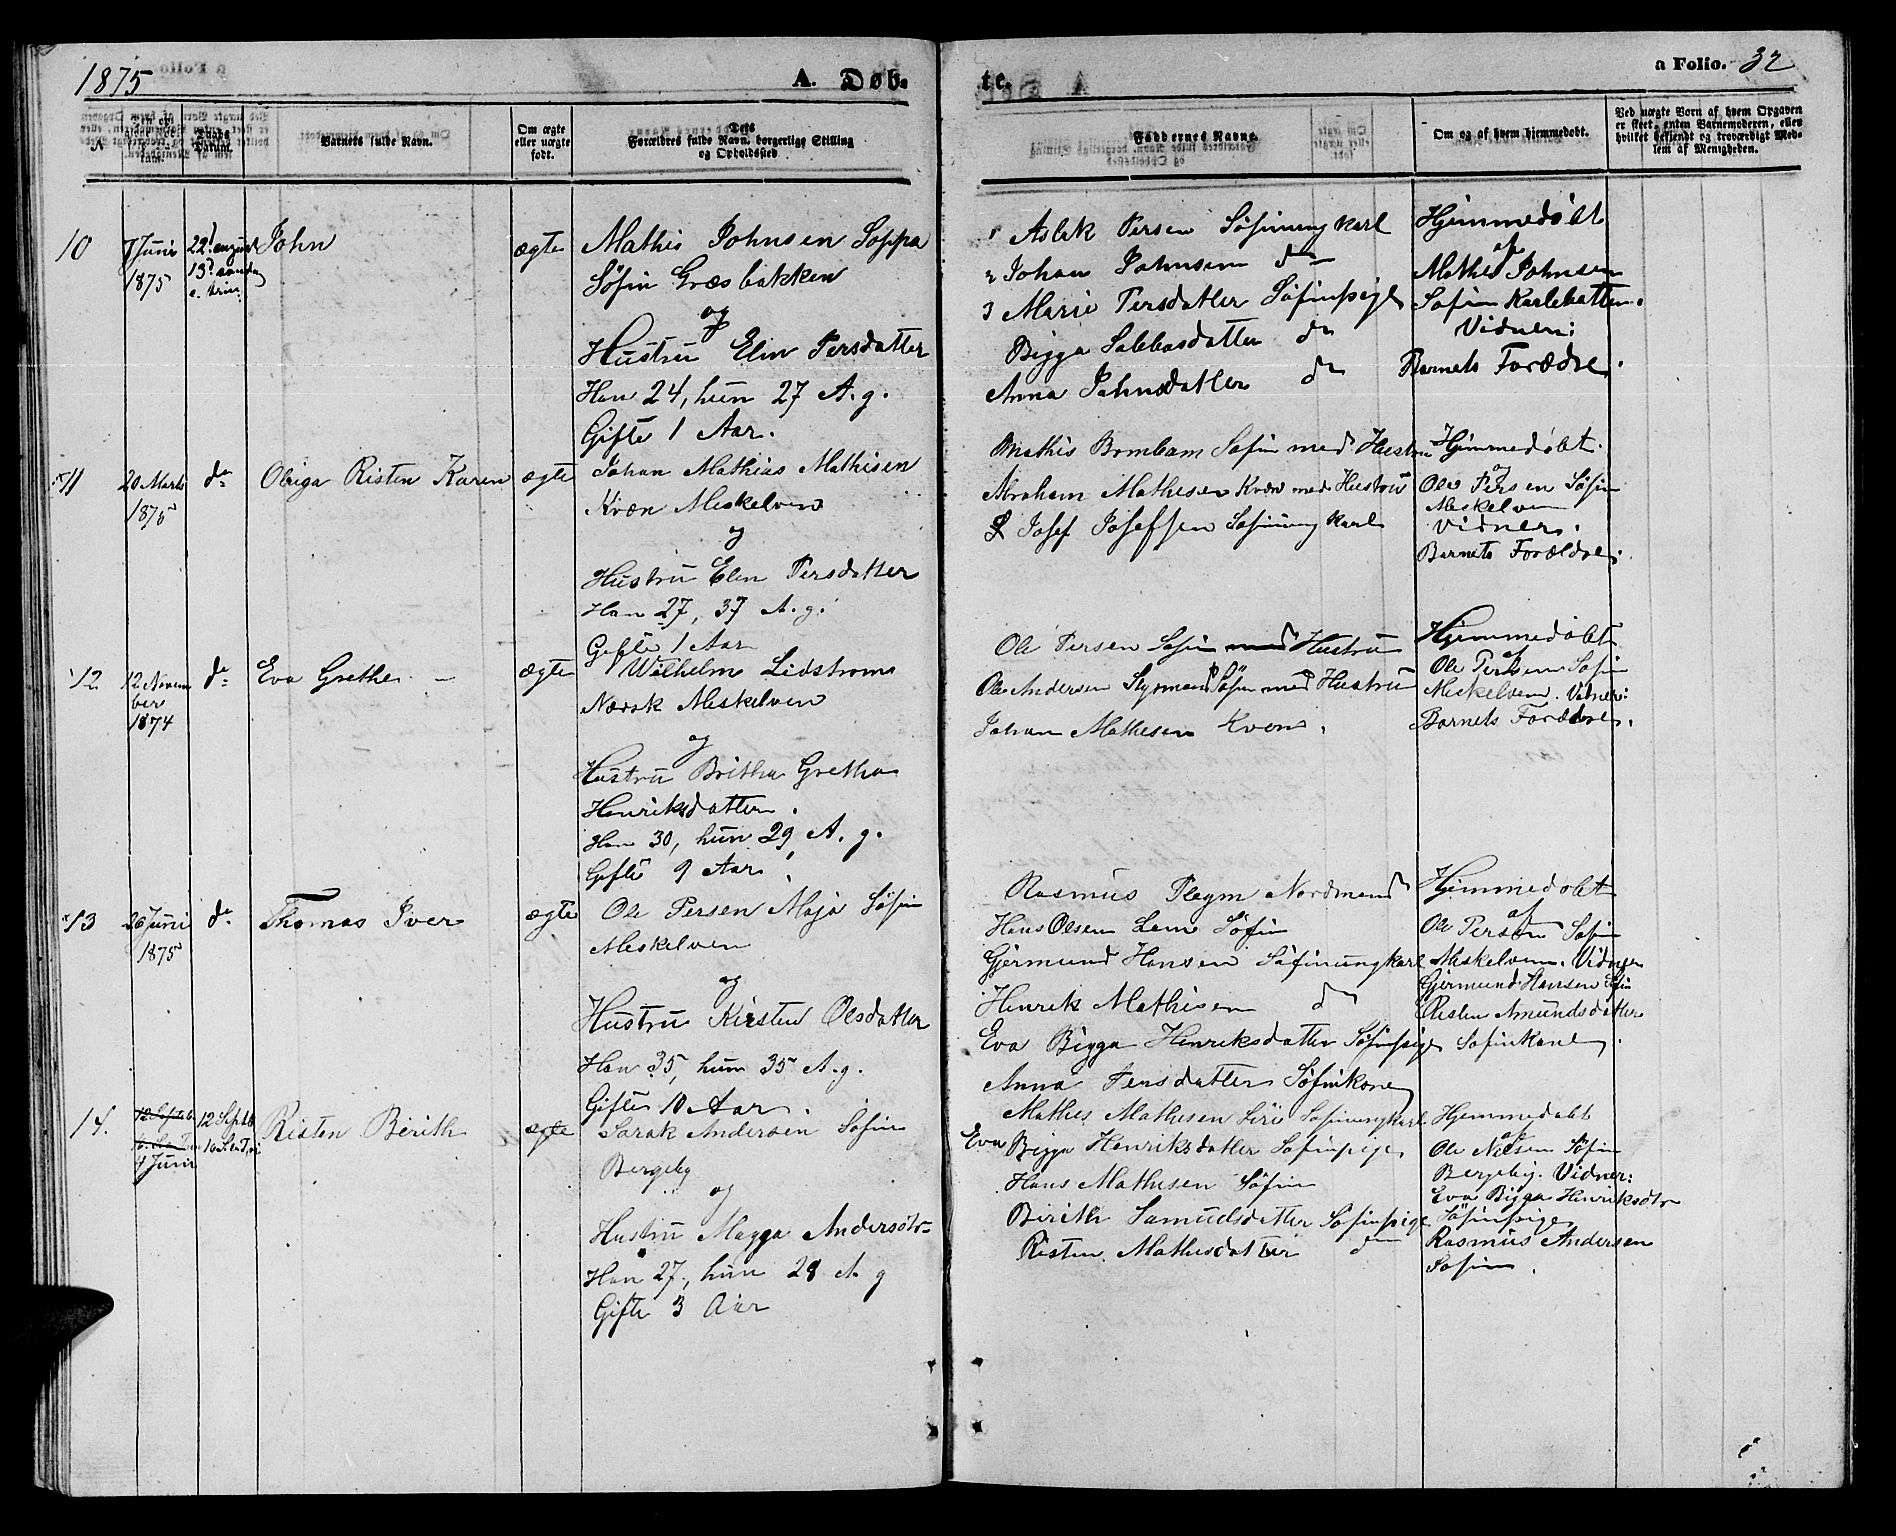 1875
A. Døb-
te.
a Folio. 32
Barnets fulde Navn.
Om ægte eller uægte født.
Dets Forældres fulde Navn, borgerlige Stilling og Opholdssted
Faddernes Navne.
Om og af hvem hjemmedøbt.
Ved uægte Børn af hvem Opgaven er skeet, enten Barnemoderen, eller hvilket bekjendt og troværdigt Medlem af Menigheden.
10
7 Juni
1875
22d august
13d søndag
e. trin.
John
ægte
Mathis Johnsen Soppa
Søfin Græsbakken
og
Hustru Elin Persdatter
Han 24, hun 27 A. g.
Gifte 1 Aar.
1 Aslak Persen Søfinungkarl
2 Johan Johnsen do
3 Marie Persdatter Søfinpige
Bigga Sabbasdatter do
Anna Johnsdatter do
Hjemmedøbt
af
Mathis Johnsen
Søfin Karlebotten.
Vidner:
Barnets Forældre.
11
20 Marts
1875
do
Olriga Risten Karen
ægte
Johan Mathias Mathisen
Kvæn Meskelven
og
Hustru Elen Persdatter
Han 27, 37 A. g.
Gifte 1 Aar
Mathis Bomban Søfin med Hustru
Abraham Mathesen Kvæn med Hustru
Josef Josefsen Søfinungkarl
Hjemmedøbt.
af
Ole Persen Søfin
Meskelven
Vidner.
Barnets Forældre.
12
12 Novem
ber
1874
do
Eva Grethe
ægte
Wilhelm Lidstrøm
Norsk Meskelven
og
Hustru Britha Gretha
Henriksdatter.
Han 30, hun 29 A. g.
Gifte 9 Aar.
Ole Persen Søfin med Hustru
Ole Andersen Styrmand Søfin med Hustru
Johan Mathesen Kvæn.
Hjemmedøbt
af
Ole Persen Søfin
Meskelven. Vidner:
Barnets Forældre.
13
26 Juni
1875
do
Thomas Iver
ægte
Ole Persen Maja Søfin
Meskelven
og
Hustru Kirsten Olsdatter
Han 35, hun 35 A. g.
Gifte 10 Aar.
Rasmus Pleym Nordmand
Hans Olsen Lem Søfin
Gjermund Hansen Søfinungkarl
Henrik Mathisen do
Eva Bigga Henriksdatter Søfinpige
Anna Persdatter Søfinkone
Hjemmedøbt
af
Ole Persen Søfin
Meskelven. Vidner
Gjermund Hansen Søfin
Risten Amundsdatter
Søfinkone.
14.
4 Juni
12 Septb
Risten Berith
ægte
Sarak Andersen Søfin
Bergeby
og
Hustru Magga Andersdtr
Han 27, hun 28 A. g
Gifte 3 Aar
Mathis Mathisen Siri Søfinungkarl
Eva Bigga Henriksdatter Søfinpige
Hans Mathisen Søfin
Berith Samuelsdatter Søfinpige
Risten Mathisdatter do
Hjemmedøbt
af
Ole Nilsen Søfin
Bergeby. Vidner:
Eva Bigga Henriksdtr
Søfinpige
Rasmus Andersen
Søfin.